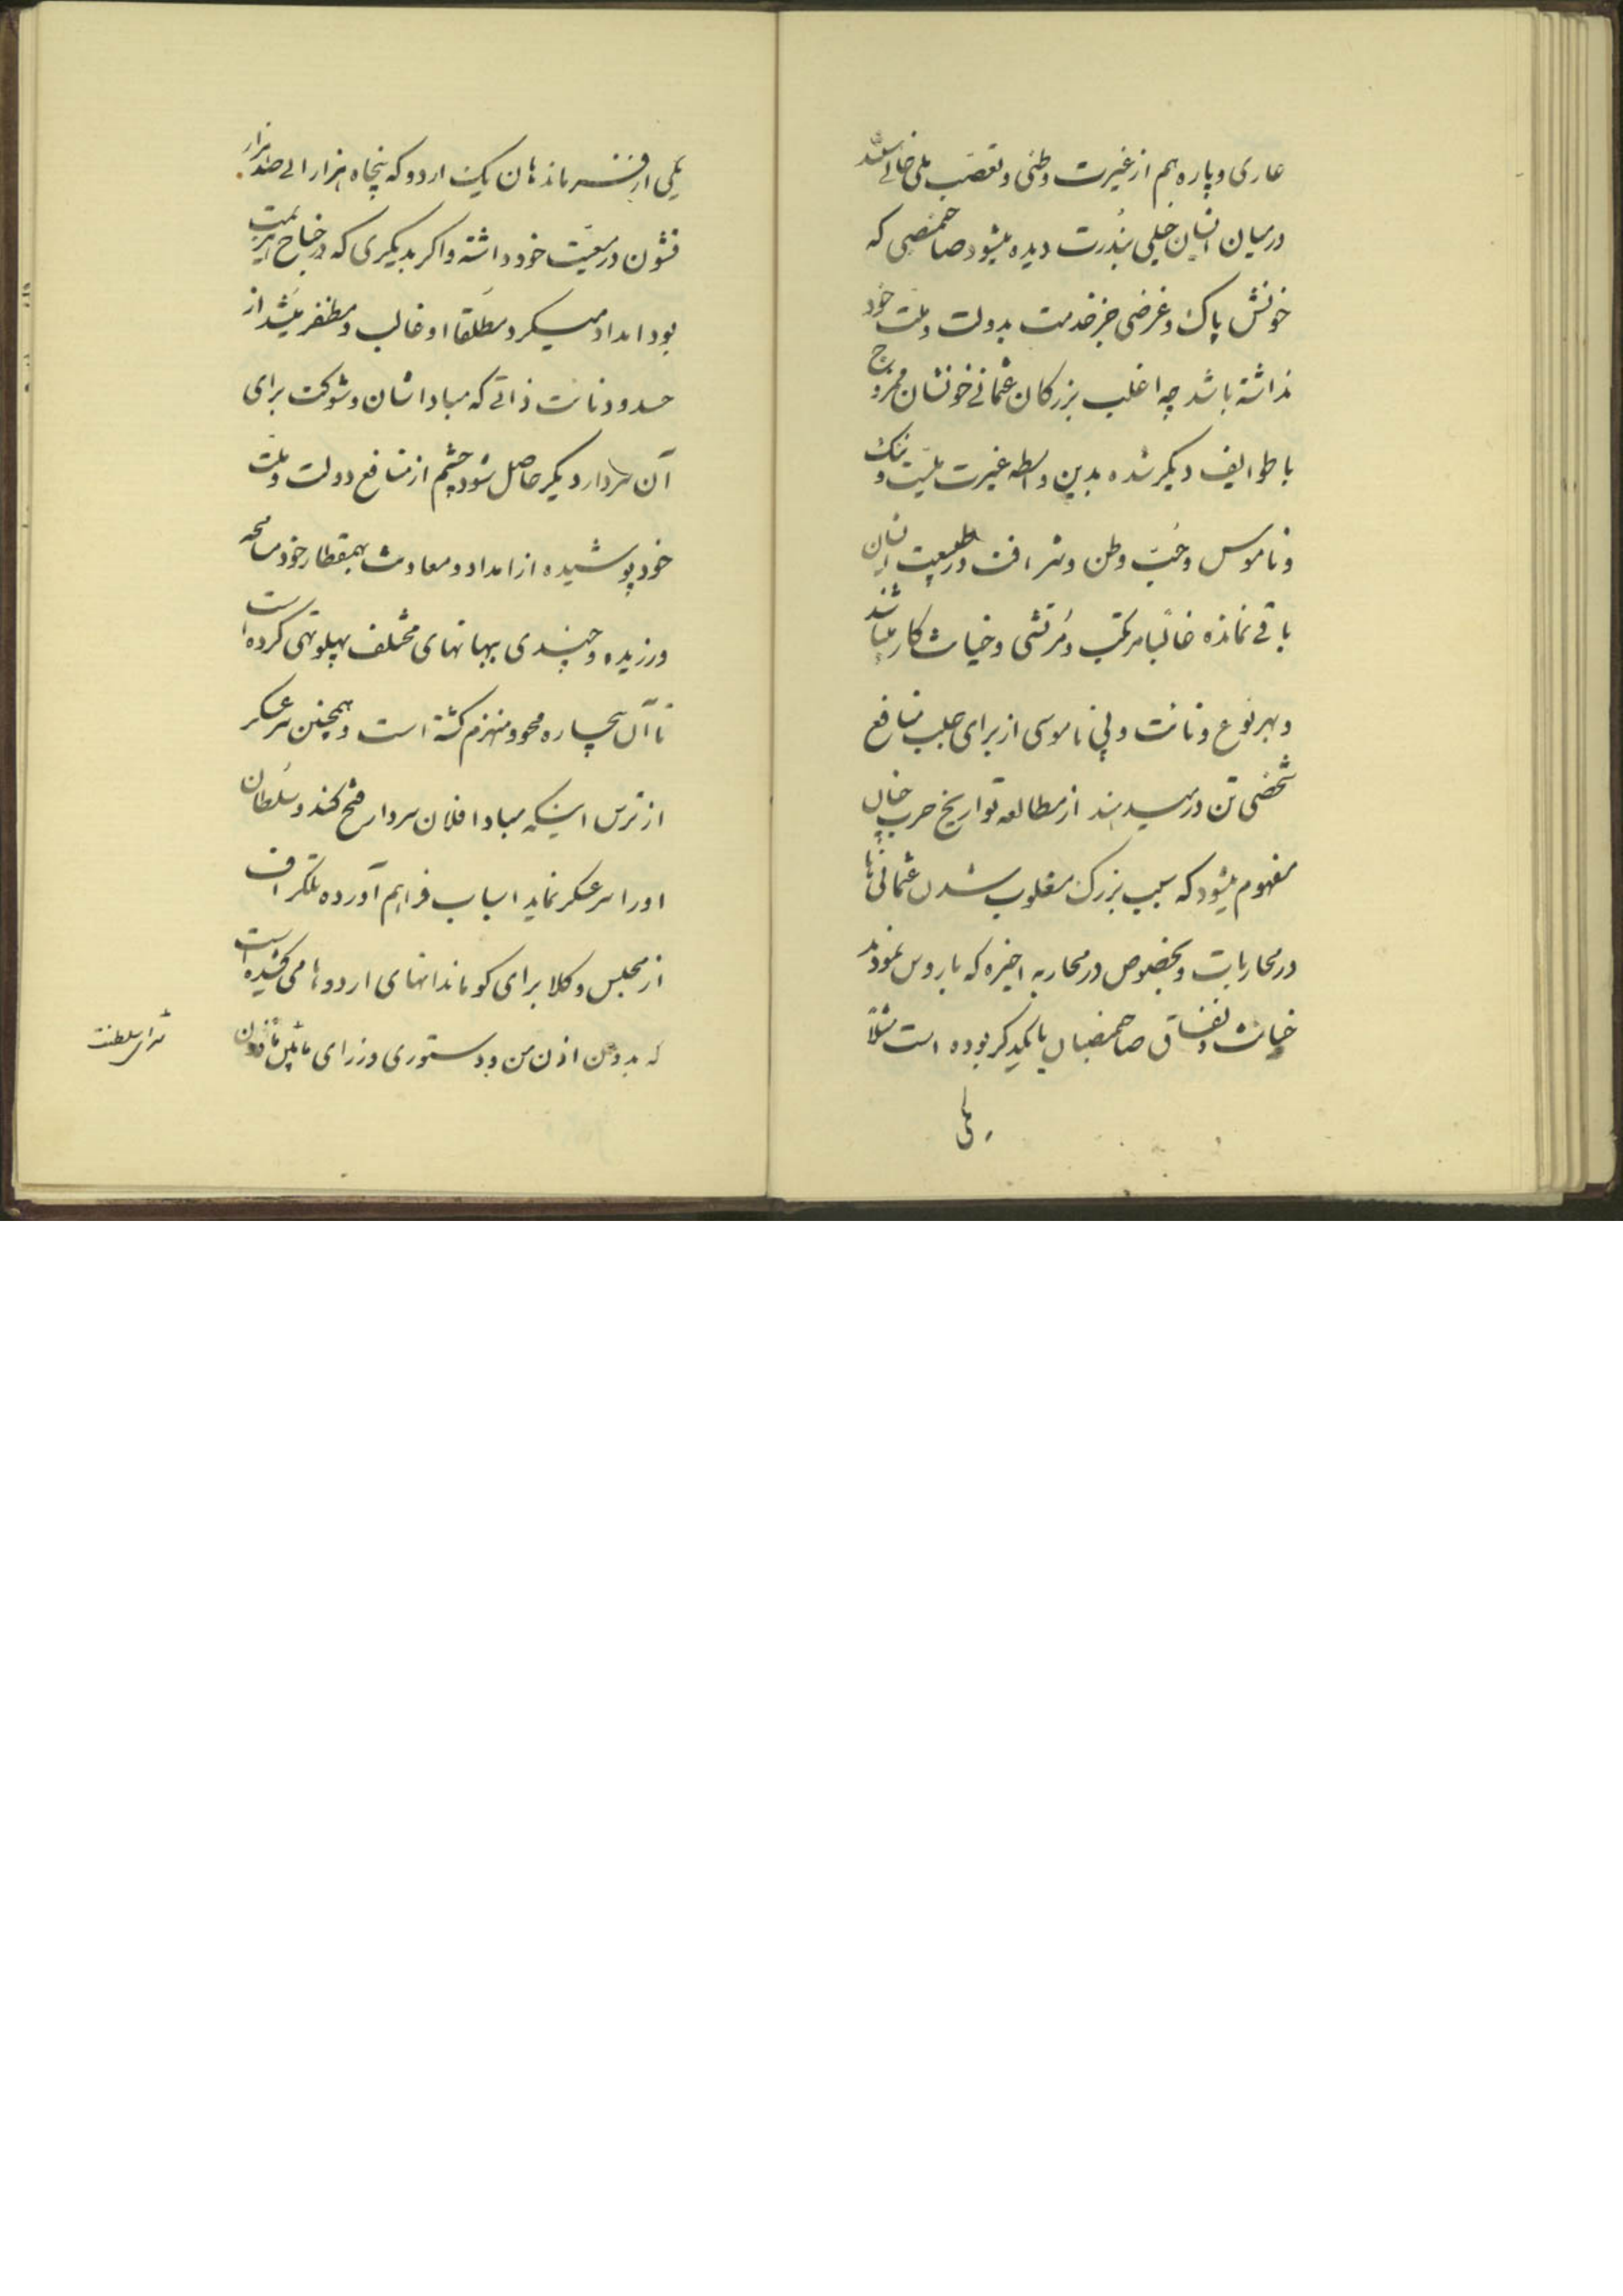 عاری و پاره هم از غیرت وطنی و تعصب ملی خالی باشند
در میان ایشان خیلی بندرت دیده میشود صاحمنصبی که
خونش پاک و غرضی جز خدمت بدولت و ملت خود
نداشته باشد چه اغلب بزرکان عثمانی خونشان ممزوج
با طوایف دیکر شده بدین واسطه غیرت ملیت و ننک
و ناموس و حب وطن و شرافت در طبیعت ایشان
باقی نمانده غالبا مرتکب و مرتشی و خیانت کار میباشند
و بهر نوع دنائت و بی ناموسی از برای جلب منافع
شخصی تن در میدهند از مطالعه تواریخ حرب چنان
مفهوم میشود که سبب بزرک مغلوب شدن عثمانی ها
در محاربات و بخصوص در محاربه اخیره که با روس نمودند
خیانت و نفاق صاحمنصبان با یکدیکر بوده است مثلا
یکی
یکی از فرماندهان یک اردو که پنجاه هزار الی صد هزار
قشون در معیت خود داشته و اکر بدیکری که در جناح هزیمت
بود امداد میکرد مطلقا او غالب و مظفر میشد از
حسد و دنائت ذاتی که مبادا شان و شوکت برای
آن سردار دیکر حاصل شود چشم از منافع دولت و ملت
خود پوشیده از امداد و معاونت بهمقطار خود مسامحه
ورزیده و چندی ببهانهای مختلف پهلو تهی کرده است
تا آن بیچاره محو و منهزم کشته است و همچنین سر عسکر
از ترس اینکه مبادا فلان سردار فتح کند و سلطان
او را سر عسکر نماید اسباب فراهم آورده تلکراف
از مجلس وکلا برای کوماندانهای اردوها می کشیده است
که بدون اذن من و دستوری وزرای